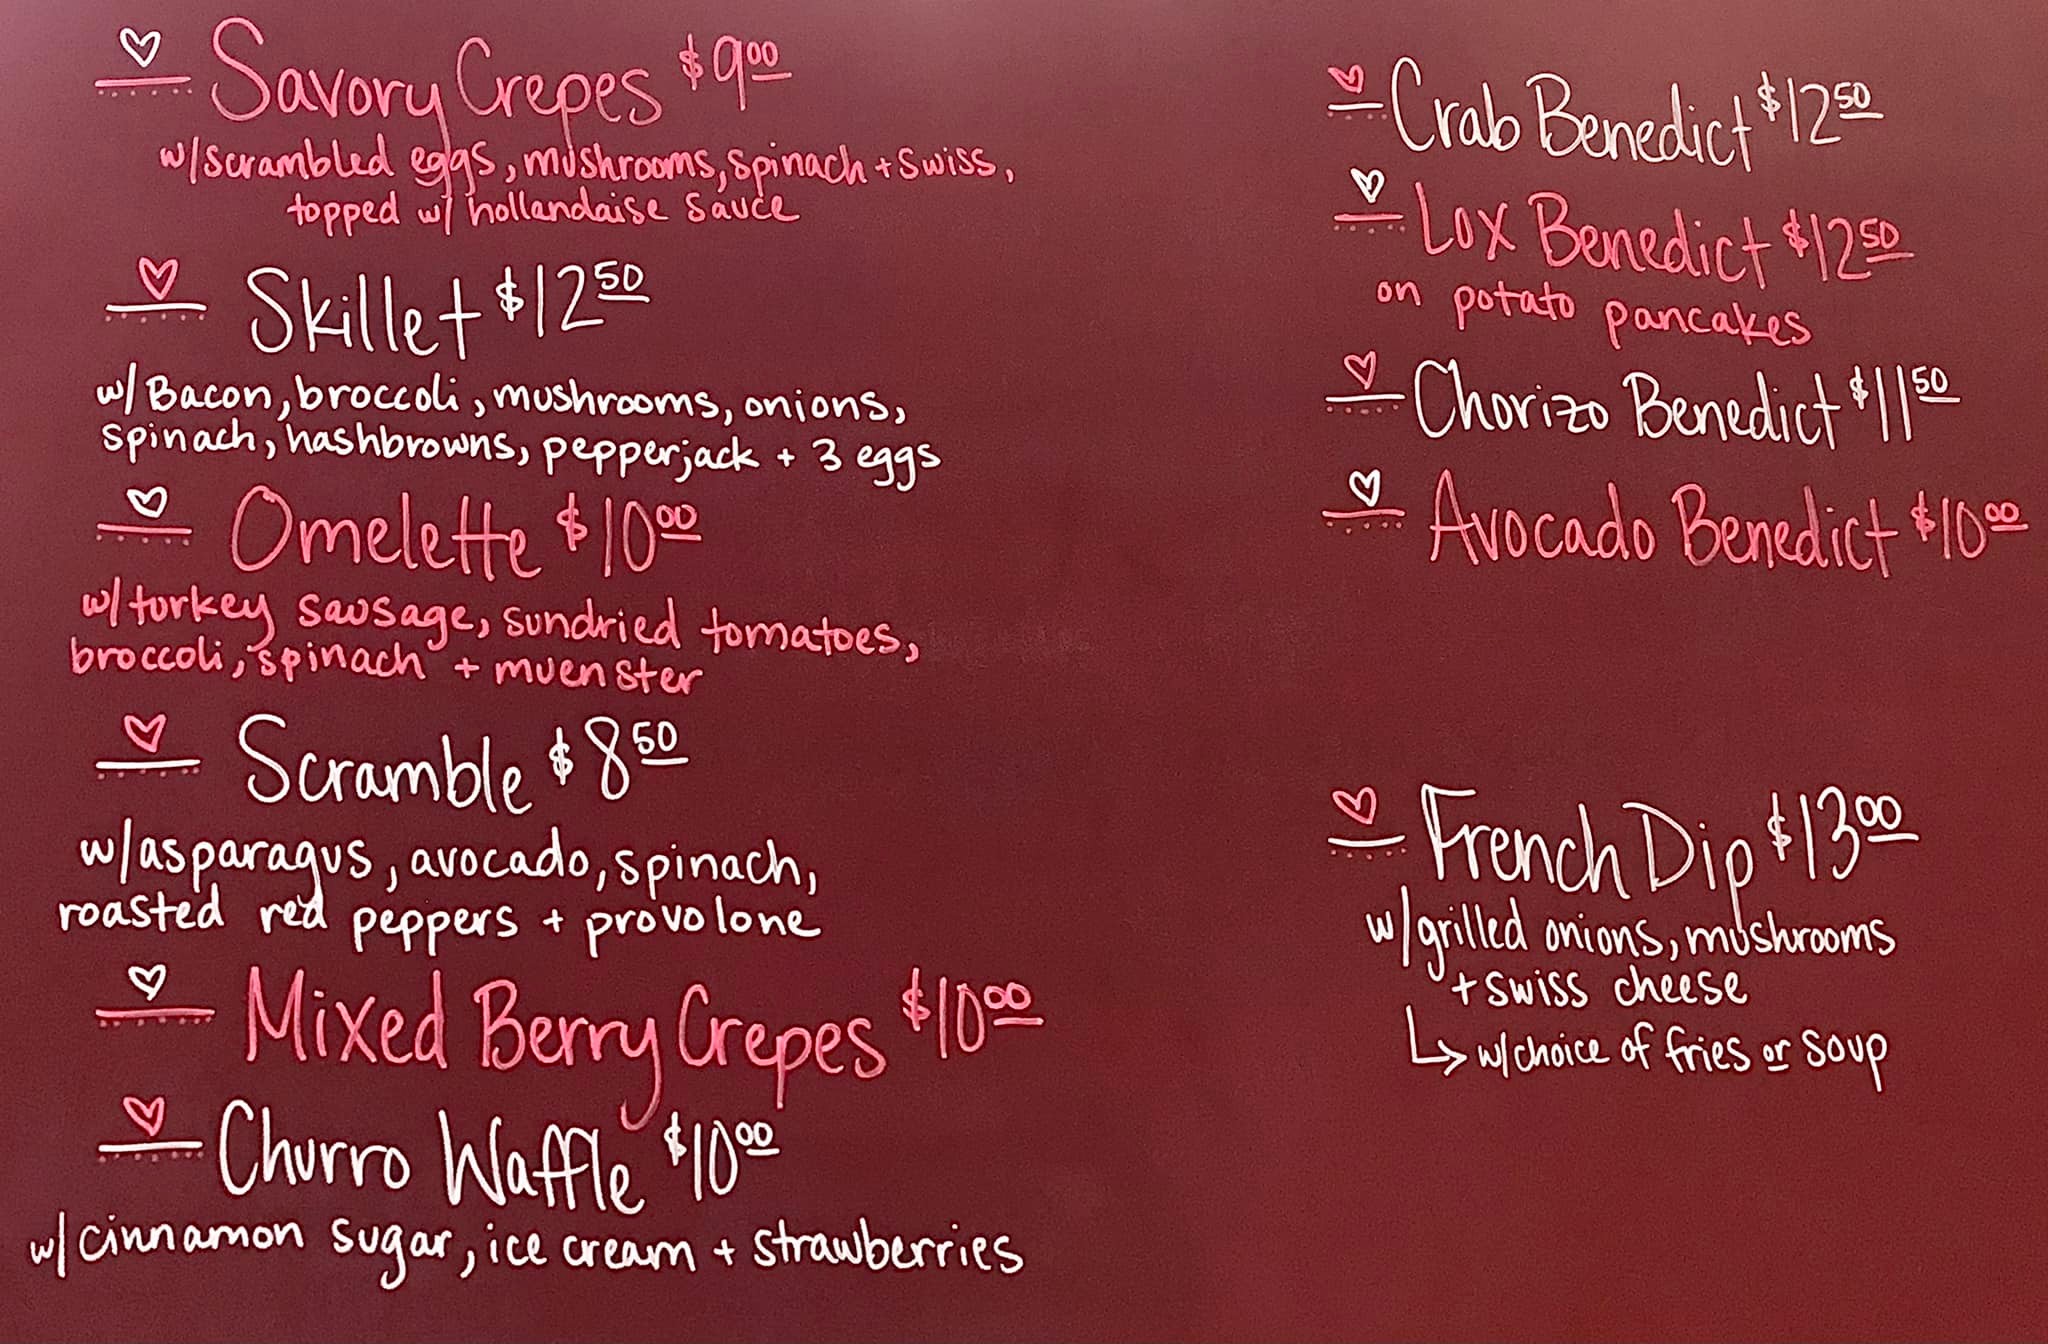 Savory Crepes $9.00
w/scrambled eggs, mushrooms, spinach + swiss,
topped w/ hollandaise sauce
Skillet $12.50
w/Bacon, broccoli, mushrooms, onions,
spinach, hashbrowns, pepperjack + 3 eggs
Omelette $10.00
w/turkey sausage, sundried tomatoes,
broccoli, spinach + muenster
Scramble $8.50
w/asparagus, avocado, spinach,
roasted red peppers + provolone
Mixed Berry Crepes $10.00
Churro Waffle $10.00
w/cinnamon sugar, ice cream + strawberries
Crab Benedict $12.50
Lox Benedict $12.50
on potato pancakes
Chorizo Benedict $11.50
Avocado Benedict $10.00
French Dip $13.00
w/grilled onions, mushrooms
+ swiss cheese
w/choice of fries or soup